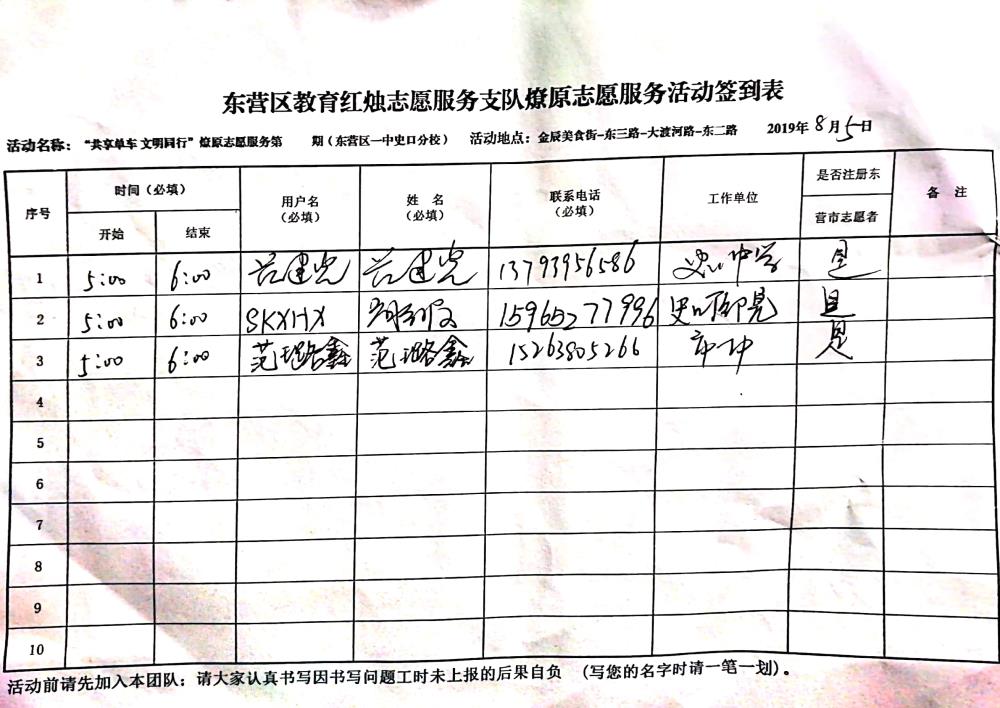 东营区教育红烛志愿服务支队燎原志愿服务活动签到表
活动名称：“共享单车 文明同行”燎原志愿服务第 期（东营区一中史口分校） 活动地点：金辰美食街-东三路-大渡河路-东二路 2019年8月5日
序号 时间（必填） 开始 结束 用户名（必填） 姓 名（必填） 联系电话（必填） 工作单位 是否注册东营市志愿者 备 注
1 5:00 6:00 建光 建光 13793956586 中学 是
2 5:00 6:00 SKXHX 15965277996 史口 是
3 5:00 6:00 范璐鑫 范璐鑫 15263805266 是
4
5
6
7
8
9
10
活动前请先加入本团队：请大家认真书写因书写问题工时未上报的后果自负 （写您的名字时请一笔一划）。